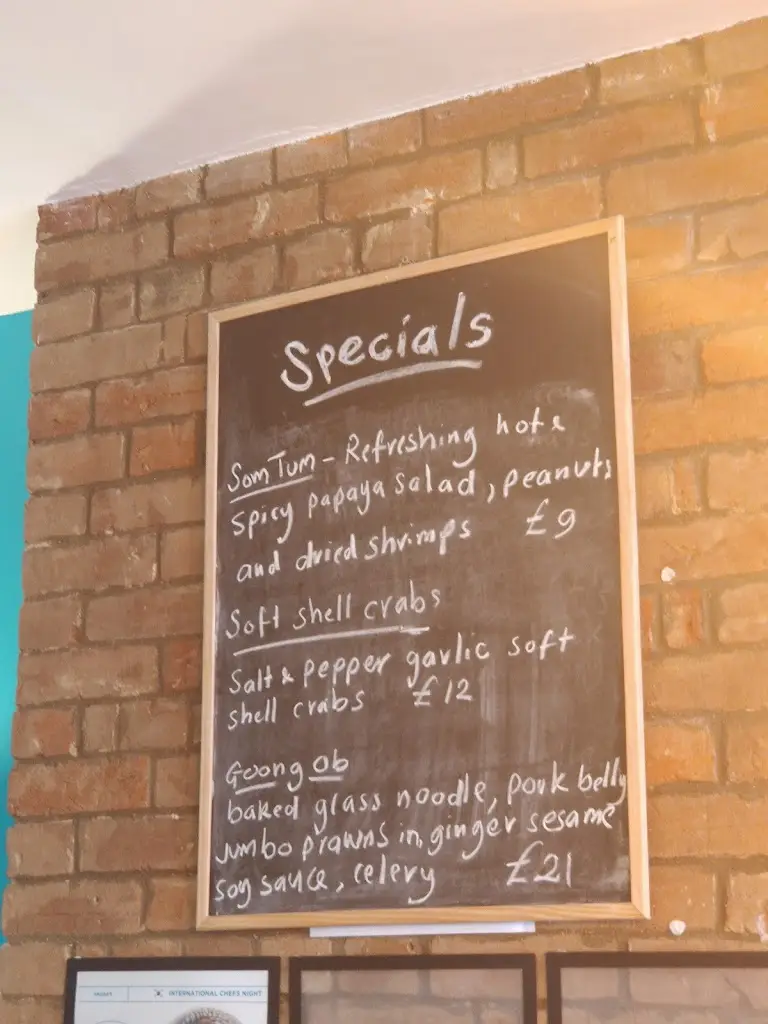 Specials
Som Tum - Refreshing hot &
spicy papaya salad, peanuts
and dried shrimps £9
Soft shell crabs
Salt & pepper garlic soft
shell crabs £12
Goong ob
baked glass noodle, pork belly
jumbo prawns in, ginger sesame
soy sauce, celery £21
INTERNATIONAL CHEFS NIGHT